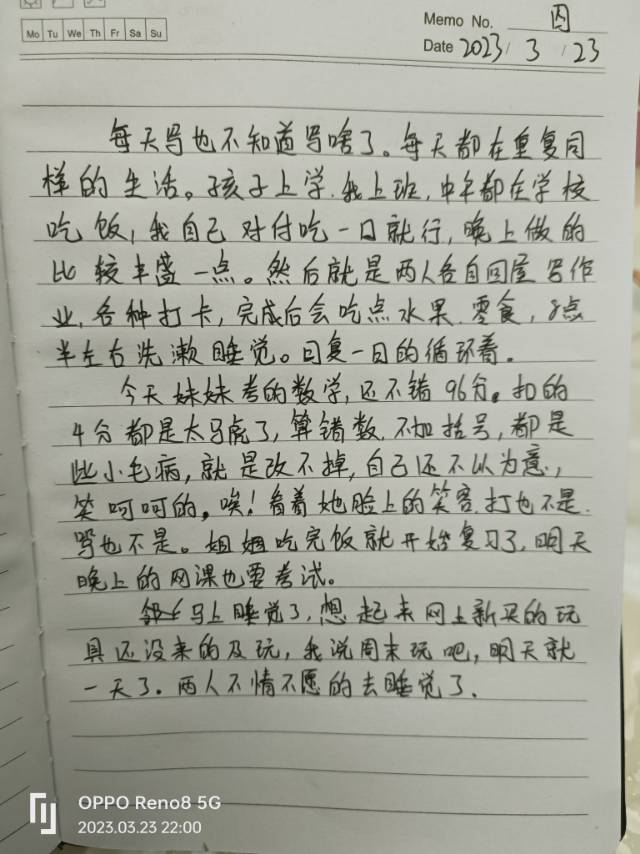 Mo Tu We Th Fr Sa Su
Memo No. 四
Date 2023/3/23
每天写也不知道写啥了。每天都在重复同
样的生活。孩子上学.我上班,中午都在学校
吃饭,我自己对付吃一口就行,晚上做的
比较丰盛一点。然后就是两人各自回屋写作
业,各种打卡,完成后会吃点水果.零食,8点
半左右洗漱睡觉。日复一日的循环着。
今天妹妹考的数学,还不错96分。扣的
4分都是太马虎了,算错数.不加括号,都是
些小毛病,就是改不掉,自己还不以为意,
笑呵呵的。唉!看着她脸上的笑容打也不是.
骂也不是。姐姐吃完饭就开始复习了,明天
晚上的网课也要考试。
马上睡觉了,想起来网上新买的玩
具还没来的及玩,我说周末玩吧,明天就
一天了.两人不情不愿的去睡觉了.
OPPO Reno8 5G
2023.03.23 22:00